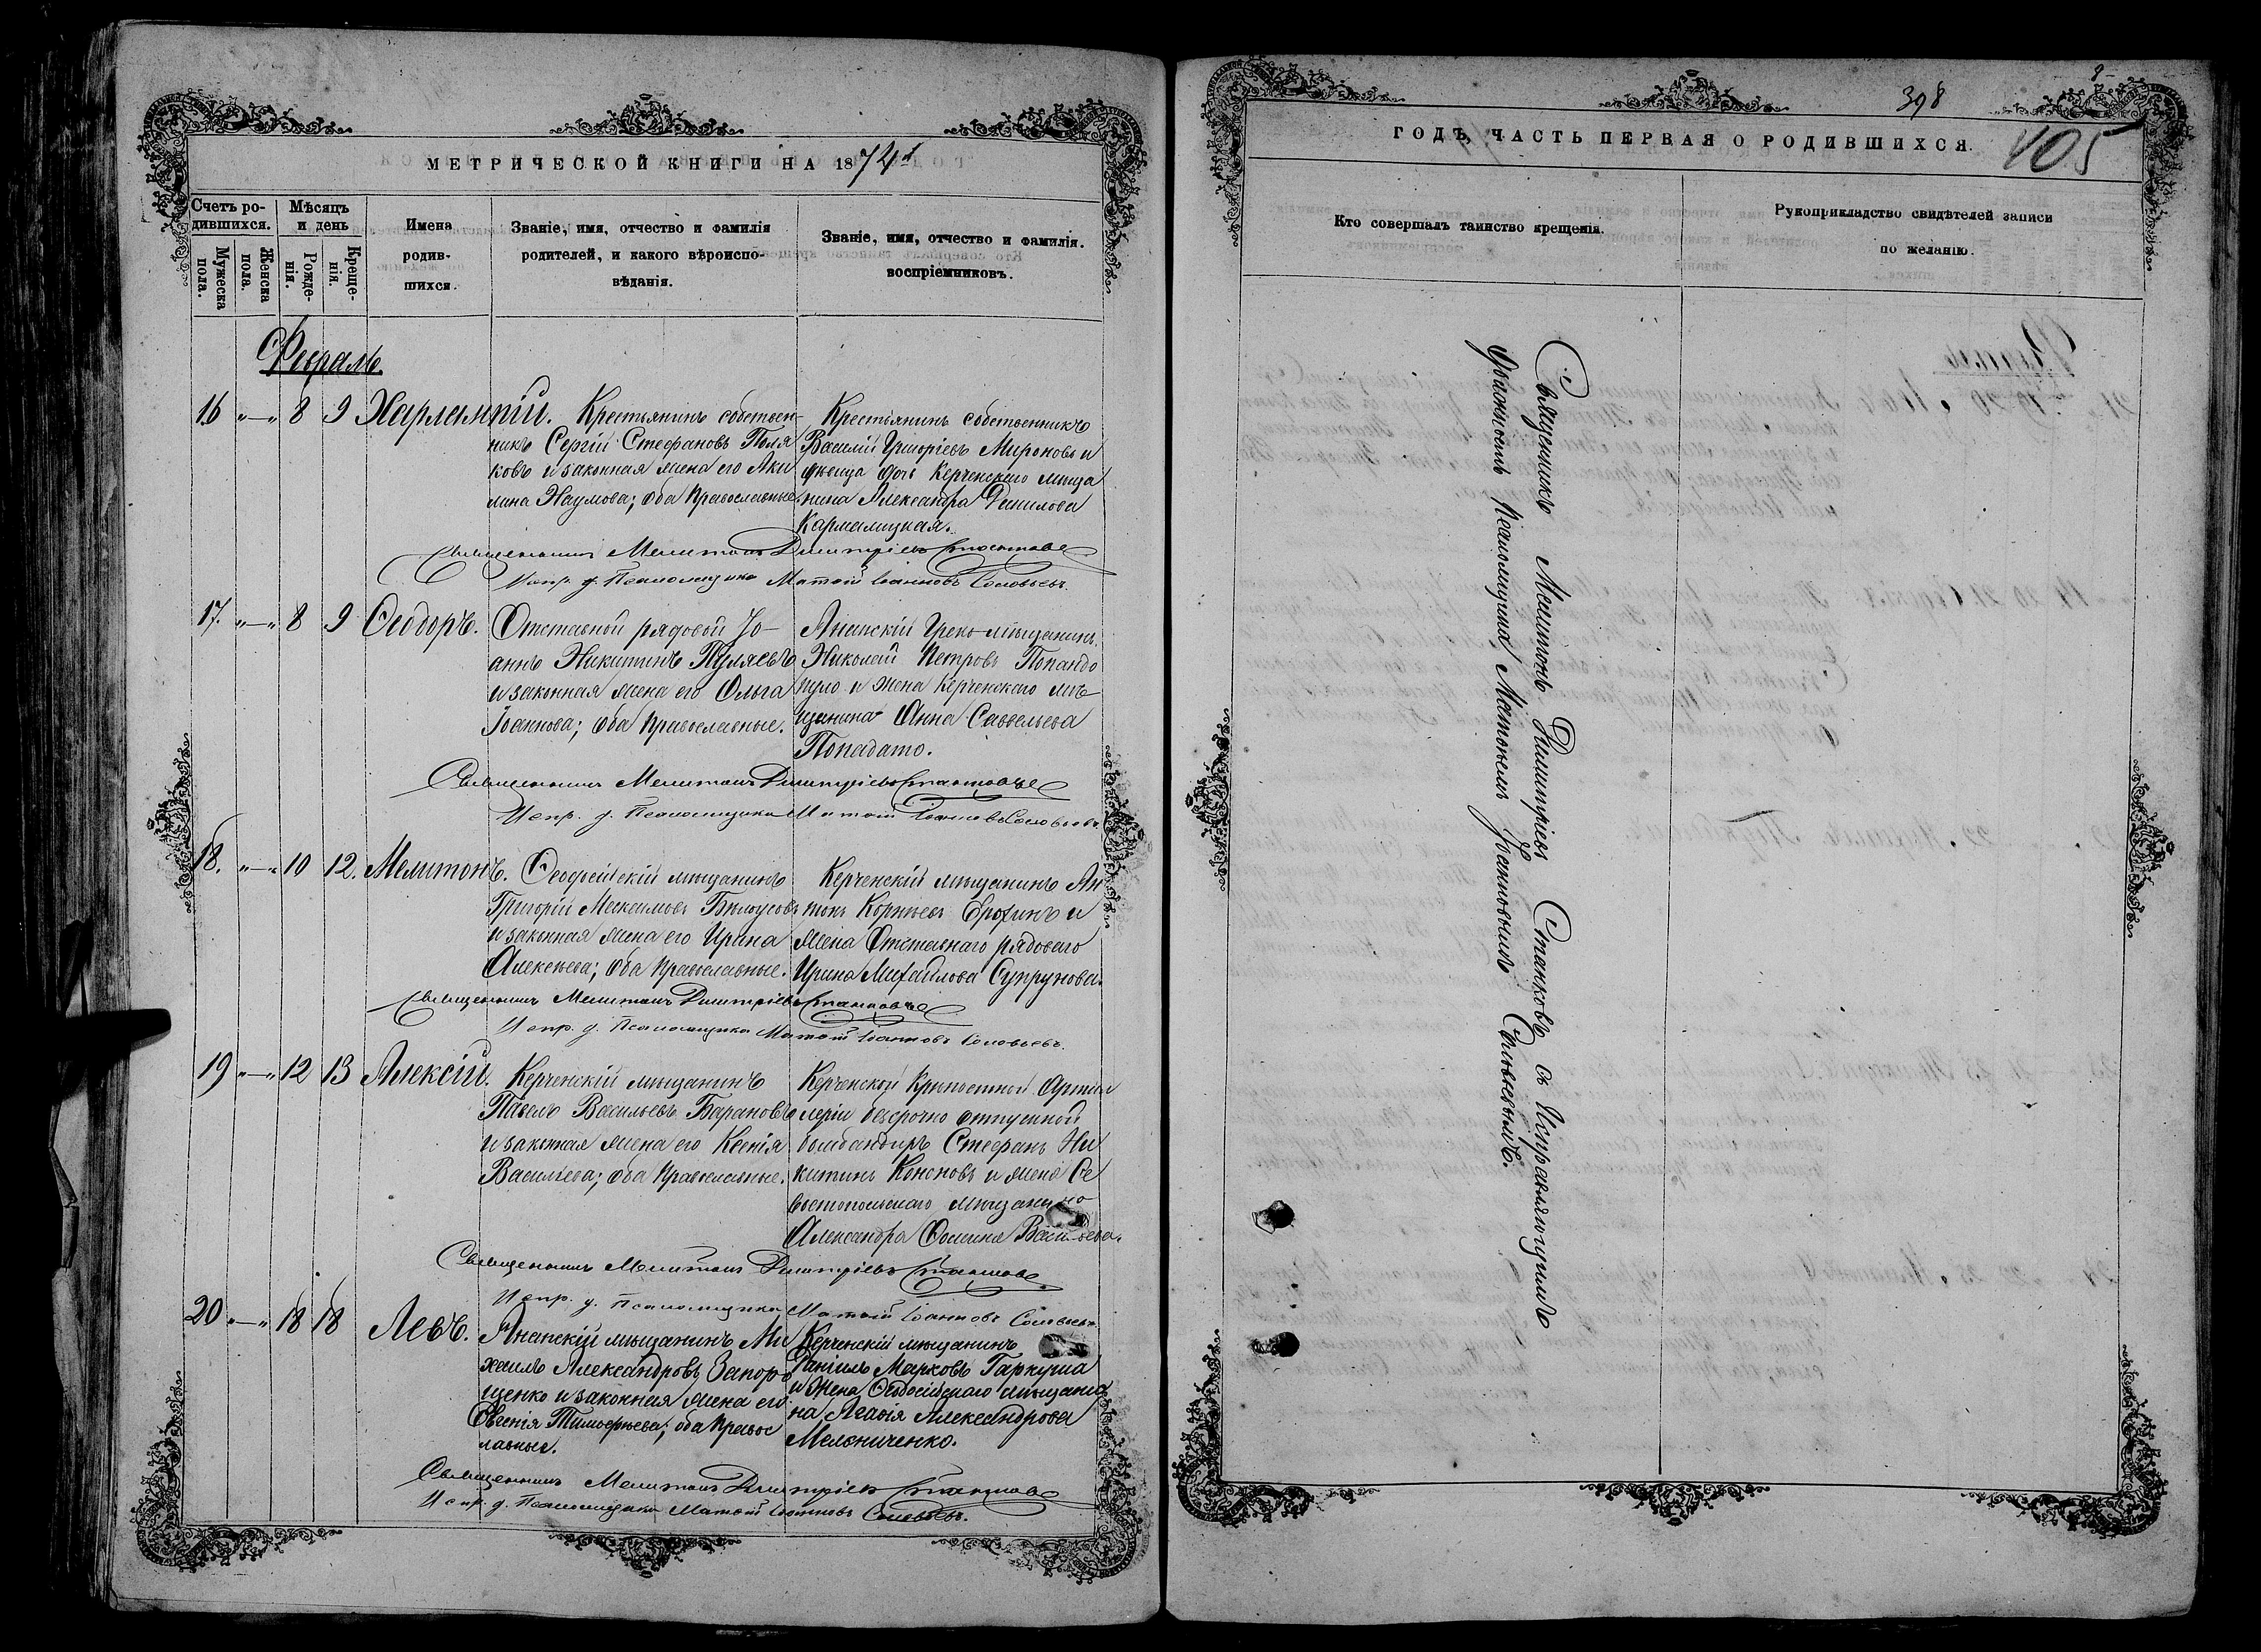 МЕТРИЧЕСКОЙ КНИГИ НА 1874й
Счетъ ро-
дившихся.
Мужеска
пола.
Женска
пола.
Мѣсяцъ
и день
Рожде-
нія.
Креще-
нія.
Имена
родив-
шихся.
Званіе, имя, отчество и фамилія
родителей, и какого вѣроиспо-
вѣданія.
Званіе, имя, отчество и фамилія.
воспріемниковъ.
Февраль.
16 „—„ 8 9 Харлампій.
Крестьянинъ собствен-
никъ Сергій Стефановъ Поля
ковъ и законная жена его Аки
лина Наумова; оба Православные.
Крестьянинъ собственникъ
Василій Григоріевъ Мироновъ и
дѣвица дочь Керченскаго мѣща
нина Александра Данилова
Кармалицкая.
Священникъ Мелитонъ Димитріевъ Станковъ
Испр. д. Псаломщика Матѳій Іоанновъ Соловьевъ.
17. „—„ 8 9 Ѳеодоръ.
Отставной рядовой Іо-
аннъ Никитинъ Пуляевъ
и законная жена его Ольга
Іоаннова; оба Православные.
Анапскій Греко мѣщанинъ
Николай Петровъ Попандо
пуло и жена Керченскаго мѣ
щанина Анна Савельева
Попадато.
Священникъ Мелитонъ Димитріевъ Станковъ
Испр. д. Псаломщика Матѳій Іоанновъ Соловьевъ.
18. „—„ 10 12. Мелитонъ.
Ѳеодосійскій мѣщанинъ
Григорій Максимовъ Бѣлоусовъ
и законная жена его Ирина
Алексѣева; оба Православные.
Керченскій мѣщанинъ Ан
тонъ Корнѣевъ Ерохинъ и
жена Отставнаго рядоваго
Ирина Михайлова Супрунова.
Священникъ Мелитонъ Димитріевъ Станковъ
Испр. д. Псаломщика Матѳій Іоанновъ Соловьевъ.
19 „—„ 12 13 Алексій.
Керченскій мѣщанинъ
Павелъ Васильевъ Барановъ
и законная жена его Ксенія
Васильева; оба Православные.
Керченской Крѣпостной Артил
леріи безсрочно отпускной
бомбандиръ Стефанъ Ни
китинъ Кононовъ и жена Се
вастопольскаго мѣщанина
Александра Ѳомина Васильева.
Священникъ Мелитонъ Димитріевъ Станковъ
Испр. д. Псаломщика Матѳій Іоанновъ Соловьевъ
20 „—„ 18 18 Левъ.
Анапскій мѣщанинъ Ми
хаилъ Александровъ Запоро
щенко и законная жена его
Евгенія Тимофѣева; оба Правос
лавные.
Керченскій мѣщанинъ
Даніилъ Марковъ Гаркуша
и жена Ѳеодосійскаго мѣщани
на Агафія Александрова
Мельниченко.
Священникъ Мелитонъ Димитріевъ Станковъ
Испр. д. Псаломщика Матѳій Іоанновъ Соловьевъ.
398
405
ГОДЪ, ЧАСТЬ ПЕРВАЯ О РОДИВШИХСЯ.
Кто совершалъ таинство крещенія.
Рукоприкладство свидѣтелей записи
по желанію.
Священникъ Мелитонъ Димитріевъ Станковъ съ Исправляющимъ
должность Псаломщика Матѳіемъ Іоанновымъ Соловьевымъ.